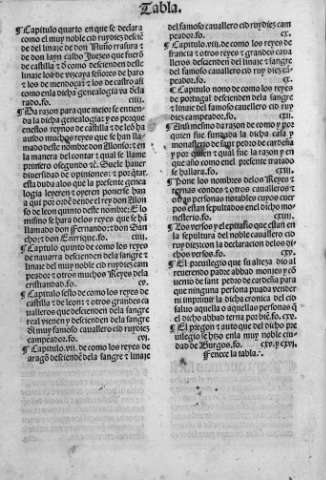 Tabla.
¶ Capitulo quarto en que se declara
como el muy noble cid ruydiez deciē
de del linaje de don Nuño rrasura τ
de don layn caluo Juezes que fuerō
de castilla τ como descienden desse
linaje los de vizcaya señores de haro
τ los de mendoça τ de castro assi
como en la dicha genealogia va decla
rado. fo. ciiij.
¶ Da razon para que mejor se entien-
da la dicha genealogia: y es porque
enestos reynos de castilla τ de leō ha
auido muchos reyes que se han lla-
mado desse nombre don Alonso: τ en
la manera del contar a qual se llame
primero o segundo τc. Suele hauer
diuersidad de opiniones: τ por quitar
esta duda a los que la presente genea
logia leyeren τ oyeren ponese han
a qui por orden desde el rey don Alon
so de leon quinto deste nombre. E lo
mismo se hara delos reyes que se hā
llamado don Fernando: τ don San-
cho: τ don Enrrique. fo. ciiij.
¶ Capitulo quinto de como los reyes
de nauarra descienden dela sangre τ
linaje del muy noble cid ruydiez cam
peador τ otros muchos Reyes dela
cristiandad. fo. cv.
¶ Capitulo sesto de como los reyes de
castilla τ de leon τ otros grandes ca
ualleros que descienden dela sangre
real vienen y descienden dela sangre
dl muy famoso cauallero cid ruydiez
campeador. fo. cvj.
¶ Capitulo. vij. de como los reyes de
aragō desciendē dela sangre τ linaje
del famoso cauallero cid ruydiez cam
peador. fo. cx.
¶ Capitulo. viij. de como los reyes de
francia τ otros reyes τ grandes caua
lleros descienden del linaje τ sangre
del famoso cauallero cid ruy diez cam
peador. fo. cx.
¶ Capitulo nono de como los reyes
de portugal descienden dela sangre τ
linaje del famoso cauallero cid ruy
diez campeador. fo. cxj.
¶ En suma da razon de como y por
quien fue fundada la dicha casa y
monasterio de sant pedro de cardeña
y por quien τ qual fue la razon y en
que año como en el presente tratado
se hallara. fo. cxij.
¶ Pone los nombres delos Reyes τ
reynas condes τ otros caualleros τ
otras personas notables cuyos cuer
pos estan sepultados en el dicho mo
nesterio. fo. cxiij.
¶ Los versos y epitafio que estan en
la sepultura del noble cauallero cid
ruy diez con la declaracion delos di-
chos versos. fo. cxv.
¶ El preuilegio que su alteza dio al
reuerendo padre abbad monjes y cō
uento de sant pedro de cardeña para
que ninguna persona pueda vender
ni imprimir la dicha cronica del cid
saluo aquella o aquellas personas q̄
el dicho abbad terna por biē. fo. cxv.
¶ El pregon τ auto que del dicho pre
uilegio se hizo enla muy noble ciu-
dad de Burgos. fo. cxv. y cxvj.
Fenece la tabla.